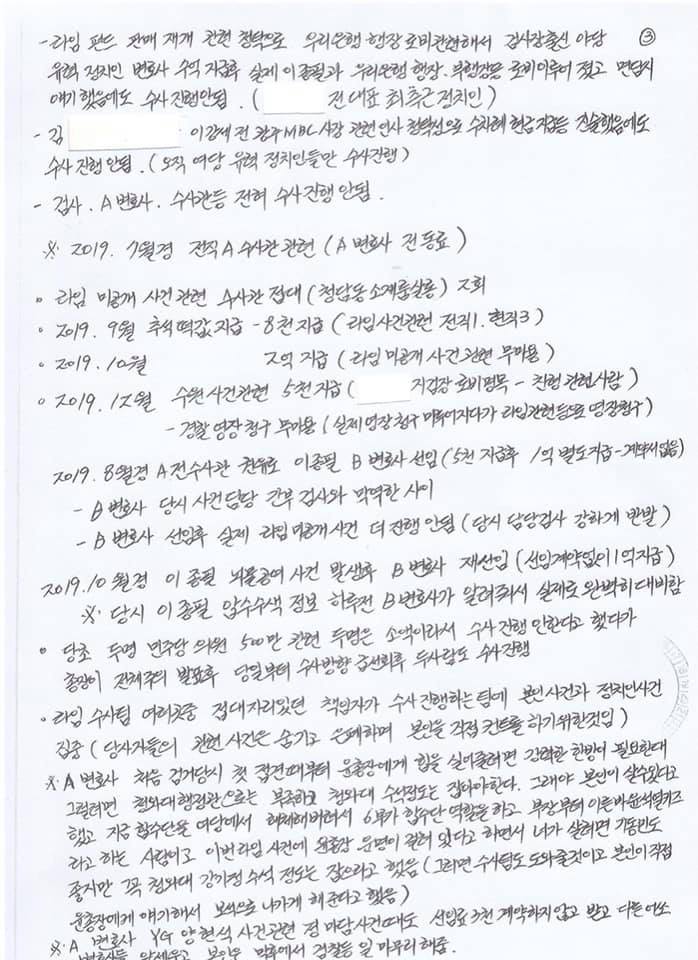 ③
- 라임 펀드 판매 재개 관련 청탁으로 우리은행 행장 로비관련해서 검사장출신 야당
유력 정치인 변호사 수억 지급후 실제 이종필과 우리은행 행장. 부행장등 로비이루어 졌고 면담시
얘기했음에도 수사 진행안됨. ( 전 대표 최측근 정치인 )
- 김 이강세 전 광주MBC 사장 관련 인사 청탁성으로 수차례 현금 지급등 진술했음에도
수사 진행 안됨. ( 오직 여당 유력 정치인들만 수사진행 )
- 검사. A 변호사. 수사관등 전혀 수사 진행 안됨.
※ 2019. 7월경 전직 A 수사관 관련 ( A 변호사 전 동료 )
◦ 라임 미공개 사건 관련 수사관 접대 ( 청담동 소재 룸살롱 ) 2회
◦ 2019. 9월 추석 떡값 지급 - 8천 지급 ( 라임사건관련 전직1. 현직3 )
◦ 2019. 10월 2억 지급 ( 라임 미공개 사건 관련 무마용 )
◦ 2019. 12월 수원 사건관련 5천 지급 ( 지검장 로비명목 - 친형 관련사람 )
- 경찰 영장 청구 무마용 ( 실제 영장청구 미루어지다가 라임관련등으로 영장청구 )
2019. 8월경 A 전수사관 권유로 이종필 B 변호사 선임 ( 5천 지급후 1억 별도지급 - 계약서 없음 )
- B 변호사 당시 사건담당 간부 검사와 막역한 사이
- B 변호사 선임후 실제 라임 미공개사건 더 진행 안됨 ( 당시 담당검사 강하게 반발 )
2019. 10월경 이종필 뇌물공여 사건 발생후 B 변호사 재선임 ( 선임계약없이 1억지급 )
※ 당시 이종필 압수수색 정보 하루전 B변호사가 알려줘서 실제로 완벽히 대비함
◦ 당초 두명 민주당 의원 500만 관련 두명은 소액이라서 수사 진행 안한다고 했다가
총장이 전체주의 발표후 당일부터 수사방향 급선회후 두사람도 수사진행
◦ 라임 수사팀 여러곳중 접대 자리있던 책임자가 수사진행하는 팀에 본인사건과 정치인사건
집중 ( 당사자들의 관련 사건은 숨기고 은폐하며 본인을 직접 컨트롤 하기위한것임 )
※ A 변호사 처음 검거당시 첫 접견때부터 윤총장에게 힘을 실어줄려면 강력한 한방이 필요한데
그럴려면 청와대 행정관으로는 부족하고 청와대 수석정도는 잡아야한다. 그래야 본인이 살수있다고
했고 지금 합수단을 여당에서 해체해버려서 6부가 합수단 역할을 하고 부장부터 이른바 윤석열키즈
라고 하는 사람이고 이번 라임 사건에 윤총장 운명이 걸려 있다고 하면서 너가 살려면 기동민도
좋지만 꼭 청와대 강기정 수석 정도는 잡으라고 했음 ( 그러면 수사팀도 도와줄것이고 본인이 직접
윤총장에게 얘기해서 보석으로 나가게 해준다고 했음 )
※. A 변호사 YG 양현석 사건관련 정 마담사건때도 선임료 3천 계약하지 않고 받고 다른 어쏘
변호사를 앞세우고 본인은 막후에서 검찰등 일 마무리 해줌.